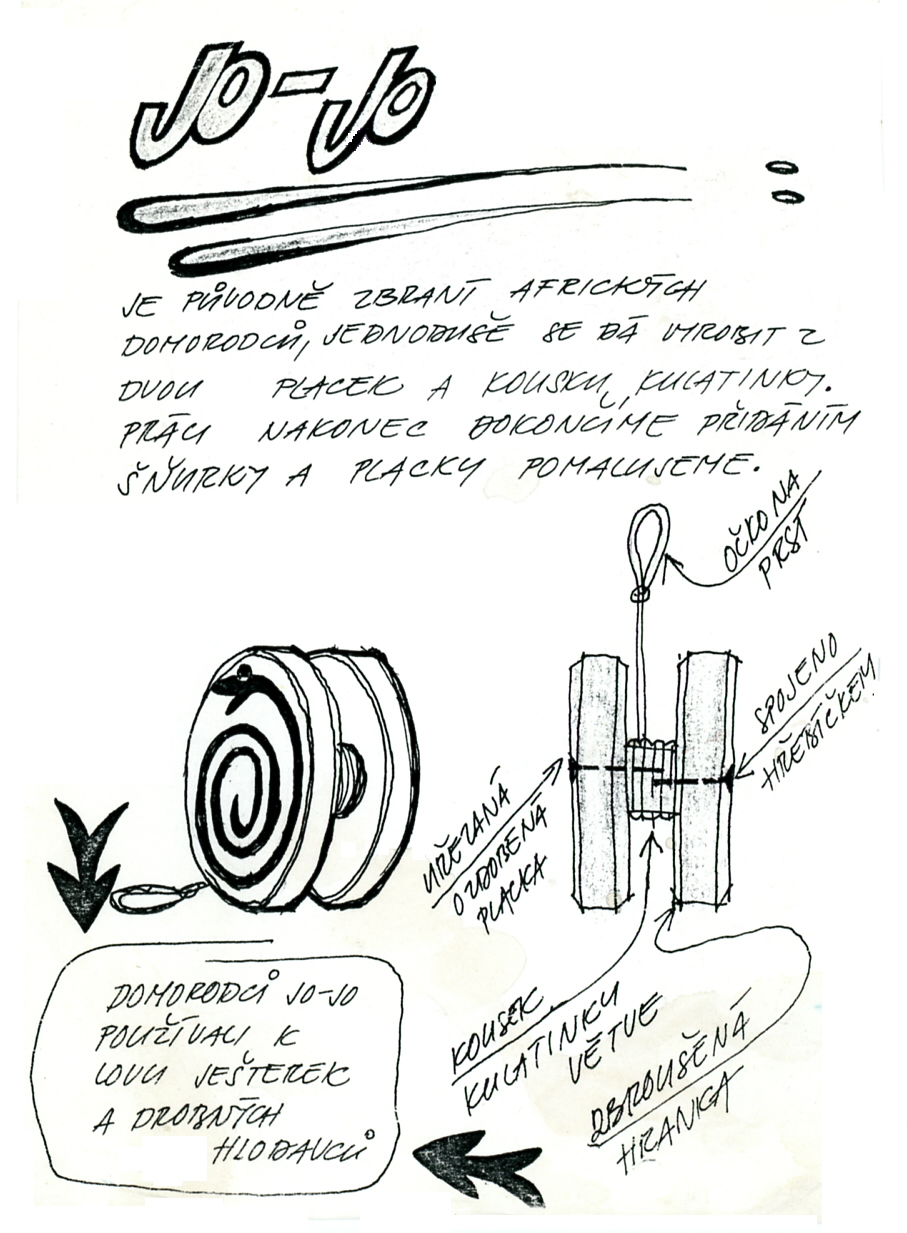 JO-JO
JE PŮVODNĚ ZBRANÍ AFRICKÝCH
DOMORODCŮ, JEDNODUŠE SE DÁ VYROBIT Z
DVOU PLACEK A KOUSKU KULATINKY.
PRÁCI NAKONEC DOKONČÍME PŘIDÁNÍM
ŠŇŮRKY A PLACKY POMALUJEME.
OČKO NA
PRST
SPOJENO
HŘEBÍČKEM
UŘEZANÁ
OZDOBENÁ
PLACKA
KOUSEK
KULATINKY
VĚTVE
ZBROUŠENÁ
HRANKA
DOMORODCI JO-JO
POUŽÍVALI K
LOVU JEŠTEREK
A DROBNÝCH
HLODAVCŮ